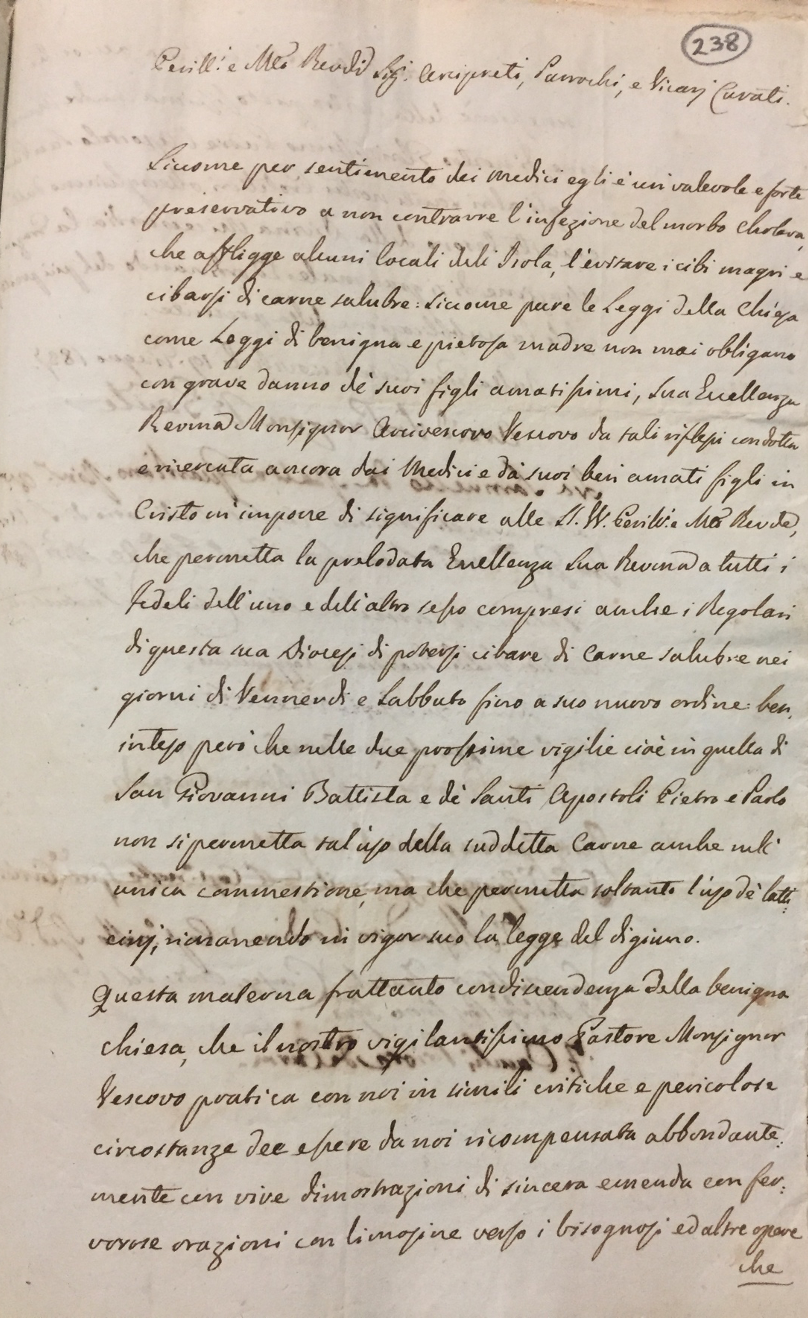 238
Perill.i e Mto Revdi Sigi. Arcipreti, Parrochi, e Vicarj Curati.
Siccome per sentimento dei Medici egli è un valevole e forte
preservativo a non contrarre l'infezione del morbo Cholera,
che affligge alcuni locali dell'Isola, l'evitare i cibi magri e
cibarsi di carne salubre: siccome pure le Leggi della Chiesa
come Leggi di benigna e pietosa madre non mai obligano
con grave danno de' suoi figli amatissimi, Sua Eccellenza
Revma Monsignor Arcivescovo Vescovo da tali riflessi condotta
e ricercata ancora dai Medici e da' suoi ben amati figli in
Cristo m'impone di significare alle SS. VV. Perill.i e Mto Revde,
che permetta la prelodata Eccellenza Sua Revma a tutti i
Fedeli dell'uno e dell'altro sesso compresi anche i Regolari
di questa sua Diocesi di potersi cibare di Carne salubre nei
giorni di Vennerdi e Sabbato fino a suo nuovo ordine: ben
inteso però che nelle due prossime vigilie cioè in quella di
San Giovanni Battista e de' Santi Apostoli Pietro e Paolo
non si permetta tal uso della suddetta Carne anche nell'
unica commestione, ma che permetta soltanto l'uso de' latti:
cinj, rimanendo in vigor suo la legge del digiuno.
Questa materna frattanto condiscendenza della benigna
chiesa, che il nostro vigilantissimo Pastore Monsignor
Vescovo pratica con noi in simili critiche e pericolose
circostanze dee essere da noi ricompensata abbondante:
mente con vive dimostrazioni di sincera emenda con fer:
vorose orazioni con limosine verso i bisognosi ed altre opere
che